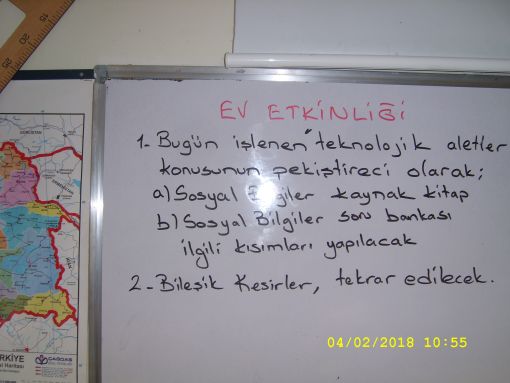 EV ETKİNLİĞİ
1- Bugün işlenen "teknolojik aletler
konusunun pekiştireci olarak;
a) Sosyal Bilgiler kaynak kitap
b) Sosyal Bilgiler soru bankası
ilgili kısımları yapılacak
2- Bileşik Kesirler, tekrar edilecek.
04/02/2018 10:55
GÜRCİSTAN
ÇAĞDAŞ
20
25